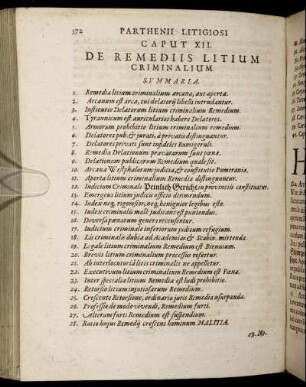 372 PARTHENII LITIGIOSI
CAPUT XII.
DE REMEDIIS LITIUM
CRIMINALIUM.
SUMMARIA.
1. Remedia litium criminalium arcana, aut aperta.
2. Arcanum est arca, cui delatorij libelli intrudantur.
3. Institutio Delatorum litium criminalium Remedium.
4. Tyrannicum est auriculatios habere Delatores.
5. Armorum prohibitio litium criminalium remedium.
6. Delatores pub. & jurati, à privatis distinguuntur.
7. Delatores privati sunt infideles Rumigeruli.
8. Remedia Delationum privatarum sunt pœna.
9. Delationum publicarum Remedium quale sit.
10. Arcana Westphalorum judicia, & constitutio Pomerania.
11. Aperta litium criminalium Remedia distinguuntur.
12. Judicium Criminale Peinlich Gericht in provinciis constituatur.
13. Emergens litium judicis officio dirimendum.
14. Judex neq, rigorosior, neq, benignior legibus esto.
15. Judex criminalis malè judicans est puniendus.
16. Diversa pœnarum genera recensentur.
17. Judicium criminale inferiorum judicum refugium.
18. Lis criminalis dubia ad Academias & Scabin. mittenda.
19. Legale litium criminalium Remedium est Biennium.
20. Brevis litium criminalium processus nisatur.
21. Ab interlocutoriâ litis criminalis ne appelletur.
22. Executivum litium criminalium Remedium est Pœna.
23. Inter specialia litium Remedia est ludi prohibitio.
24. Retorsio litium injuriosarum Remedium.
25. Crescente Retorsione, ordinaria juris Remedia usurpanda.
26. Professio de modo vivendi, Remedium furti.
27. Alterum furti Remedium est suspendium.
28. Ratio hujus Remedij crescens hominum MALITIA.